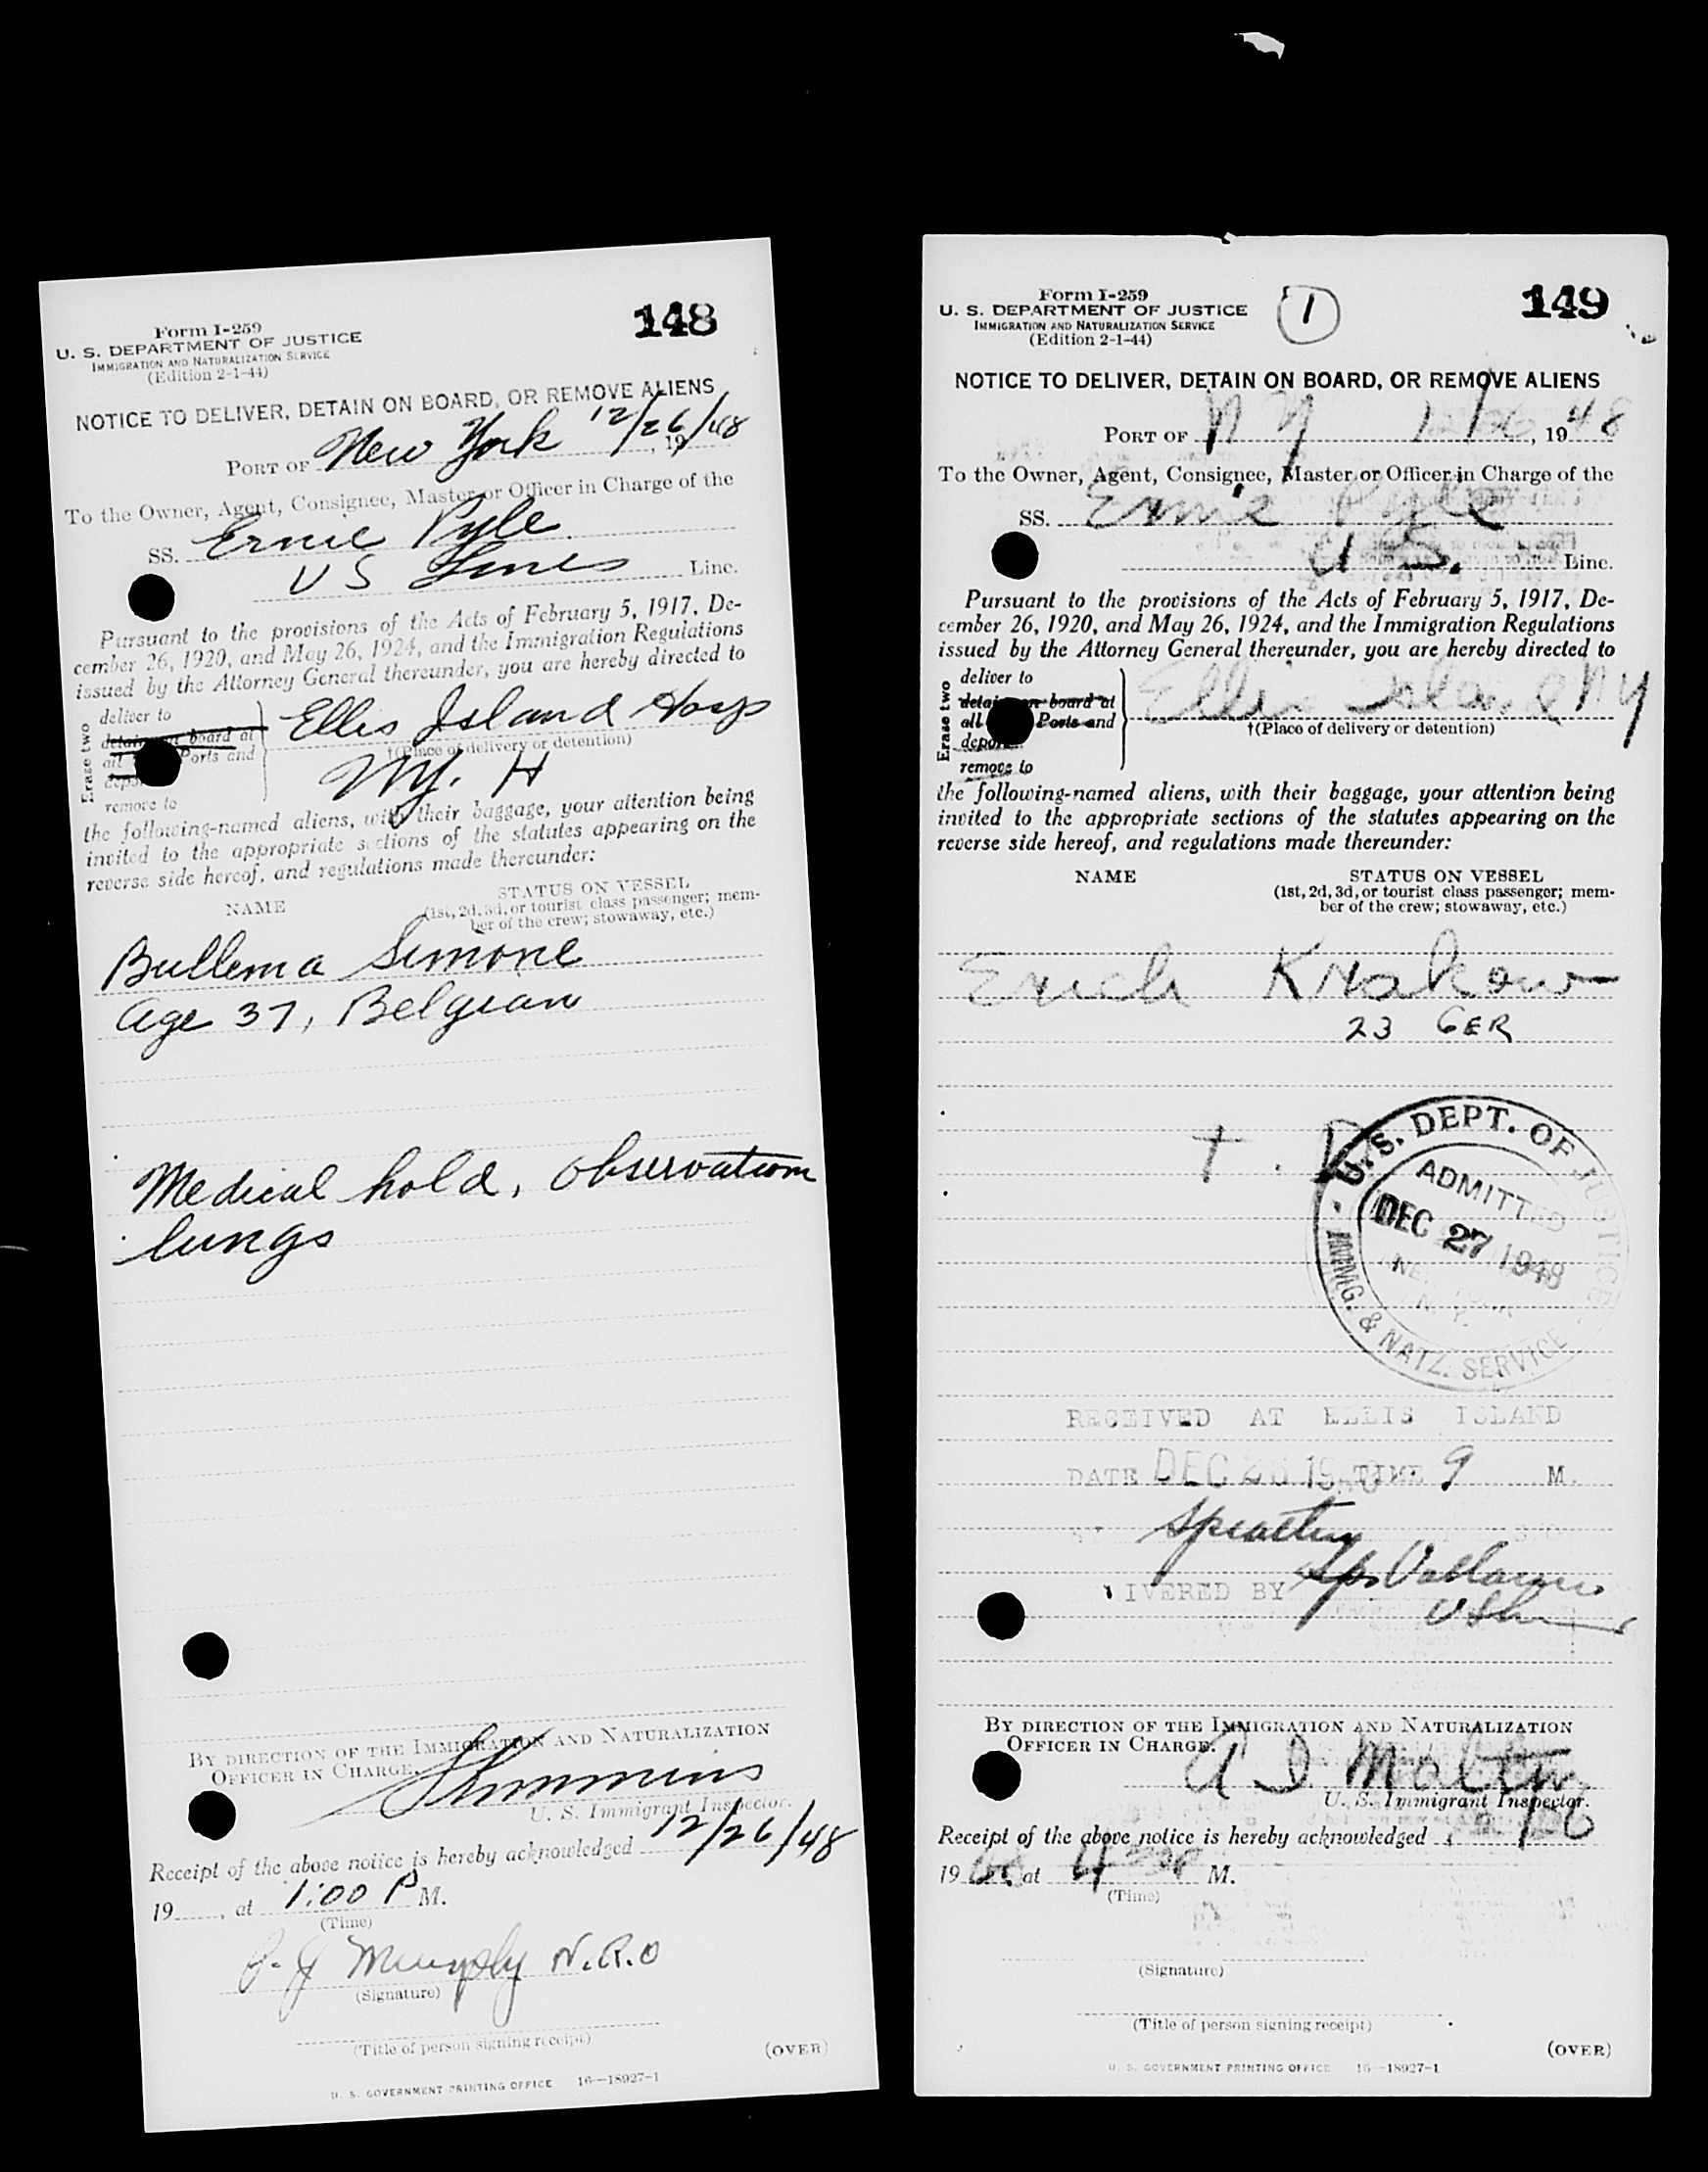 Form I-259
U. S. DEPARTMENT OF JUSTICE
IMMIGRATION AND NATURALIZATION SERVICE
(Edition 2-1-44)
148
NOTICE TO DELIVER, DETAIN ON BOARD, OR REMOVE ALIENS
PORT OF New York 12/26/48, 19
To the Owner, Agent, Consignee, Master or Officer in Charge of the
SS. Ernie Pyle
US Lines Line.
Pursuant to the provisions of the Acts of February 5, 1917, De-
cember 26, 1920, and May 26, 1924, and the Immigration Regulations
issued by the Attorney General thereunder, you are hereby directed to
Erase two
deliver to
detain on board at
all Ports and
remove to
Ellis Island Hosp
†(Place of delivery or detention)
NY. H
the following-named aliens, with their baggage, your attention being
invited to the appropriate sections of the statutes appearing on the
reverse side hereof, and regulations made thereunder:
NAME
STATUS ON VESSEL
(1st, 2d, 3d, or tourist class passenger; mem-
ber of the crew; stowaway, etc.)
Bullema Simone
Age 37, Belgian
Medical hold, observation
lungs
BY DIRECTION OF THE IMMIGRATION AND NATURALIZATION
OFFICER IN CHARGE.
U. S. Immigrant Inspector.
Receipt of the above notice is hereby acknowledged 12/26/48
19 , at 1:00 P M.
(Time)
Murphy N.R.O
(Signature)
(Title of person signing receipt)
(OVER)
U. S. GOVERNMENT PRINTING OFFICE 16—18927-1
Form I-259
U. S. DEPARTMENT OF JUSTICE
IMMIGRATION AND NATURALIZATION SERVICE
(Edition 2-1-44)
1
149
NOTICE TO DELIVER, DETAIN ON BOARD, OR REMOVE ALIENS
PORT OF N Y , 1948
To the Owner, Agent, Consignee, Master or Officer in Charge of the
SS. Ernie Pyle
U S. Line.
Pursuant to the provisions of the Acts of February 5, 1917, De-
cember 26, 1920, and May 26, 1924, and the Immigration Regulations
issued by the Attorney General thereunder, you are hereby directed to
Erase two
deliver to
detain on board at
all Ports and
remove to
Ellis Island NY
†(Place of delivery or detention)
the following-named aliens, with their baggage, your attention being
invited to the appropriate sections of the statutes appearing on the
reverse side hereof, and regulations made thereunder:
NAME
STATUS ON VESSEL
(1st, 2d, 3d, or tourist class passenger; mem-
ber of the crew; stowaway, etc.)
Erich Krakow
23 GER
U.S. DEPT. OF JUSTICE
ADMITTED
DEC 27 1948
NEW YORK
N. Y.
IMMIG. & NATZ. SERVICE
RECEIVED AT ELLIS ISLAND
DATE DEC 26 TIME 9 M.
IVERED BY
BY DIRECTION OF THE IMMIGRATION AND NATURALIZATION
OFFICER IN CHARGE.
U. S. Immigrant Inspector.
Receipt of the above notice is hereby acknowledged
1948 at M.
(Time)
(Signature)
(Title of person signing receipt)
(OVER)
U. S. GOVERNMENT PRINTING OFFICE 16—18927-1